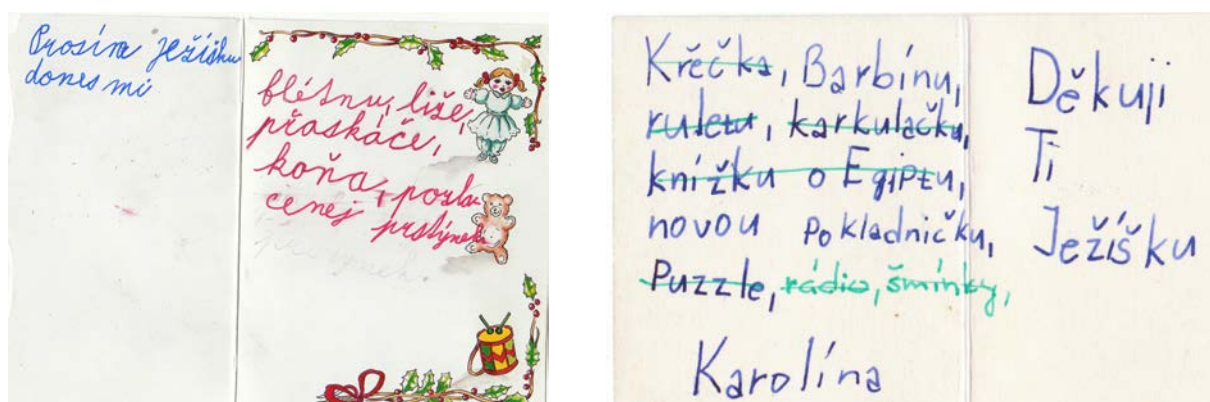 Prosím ježíšku
dones mi
flétnu, liže,
přaskáče,
koňa, pozla
cenej prstýnek
Křečka, Barbínu,
ruletu, karkulačku,
knížku o Egiptu,
novou pokladničku,
Puzzle, rádio, šmínky,
Karolína
Děkuji
Ti
Ježíšku